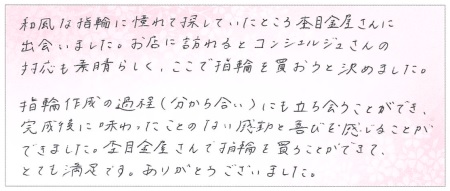 和風な指輪に憧れて探していたところ杢目金屋さんに
出会いました。お店に訪れるとコンシェルジュさんの
対応も素晴らしく、ここで指輪を買おうと決めました。
指輪作成の過程(分かち合い)にも立ち会うことができ、
完成後に味わったことのない感動と喜びを感じることが
できました。杢目金屋さんで指輪を買うことができて、
とても満足です。ありがとうございました。